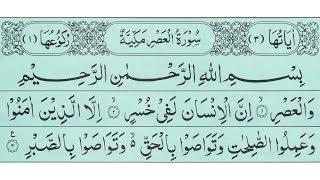 اٰيَاتُهَا (٣) سُوْرَةُ الْعَصْرِ مَكِّيَّةٌ رُكُوْعُهَا (١)
بِسْمِ اللهِ الرَّحْمٰنِ الرَّحِيْمِ
وَالْعَصْرِ ۙ١ اِنَّ الْاِنْسَانَ لَفِيْ خُسْرٍ ۙ٢ اِلَّا الَّذِيْنَ اٰمَنُوْا
وَعَمِلُوا الصّٰلِحٰتِ وَتَوَاصَوْا بِالْحَقِّ ۙ۬ وَتَوَاصَوْا بِالصَّبْرِ ٣